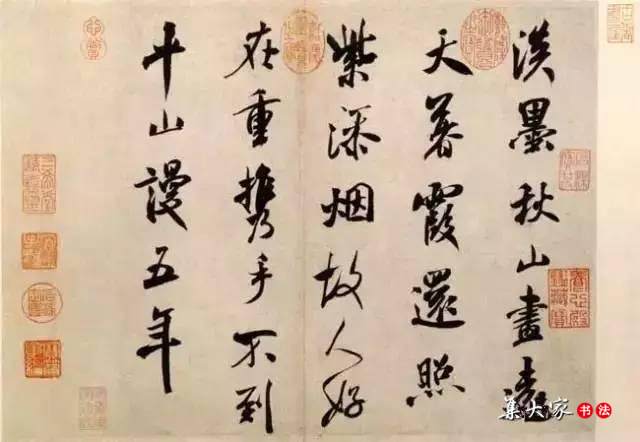 淡墨秋山畫遠
天暮霞還照
紫添烟故人好
在重携手不到
平山謾五年
集大家 书法